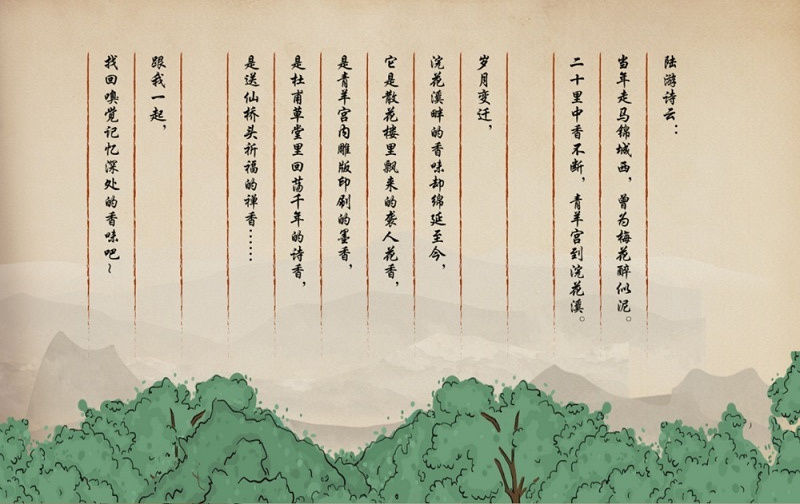 陆游诗云：
当年走马锦城西，曾为梅花醉似泥。
二十里中香不断，青羊宫到浣花溪。
岁月变迁，
浣花溪畔的香味却绵延至今，
它是散花楼里飘来的袭人花香，
是青羊宫内雕版印刷的墨香，
是杜甫草堂里回荡千年的诗香，
是送仙桥头祈福的禅香……
跟我一起，
找回嗅觉记忆深处的香味吧~